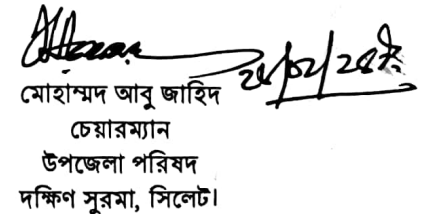 মোহাম্মদ আবু জাহিদ
চেয়ারম্যান
উপজেলা পরিষদ
দক্ষিণ সুরমা, সিলেট।